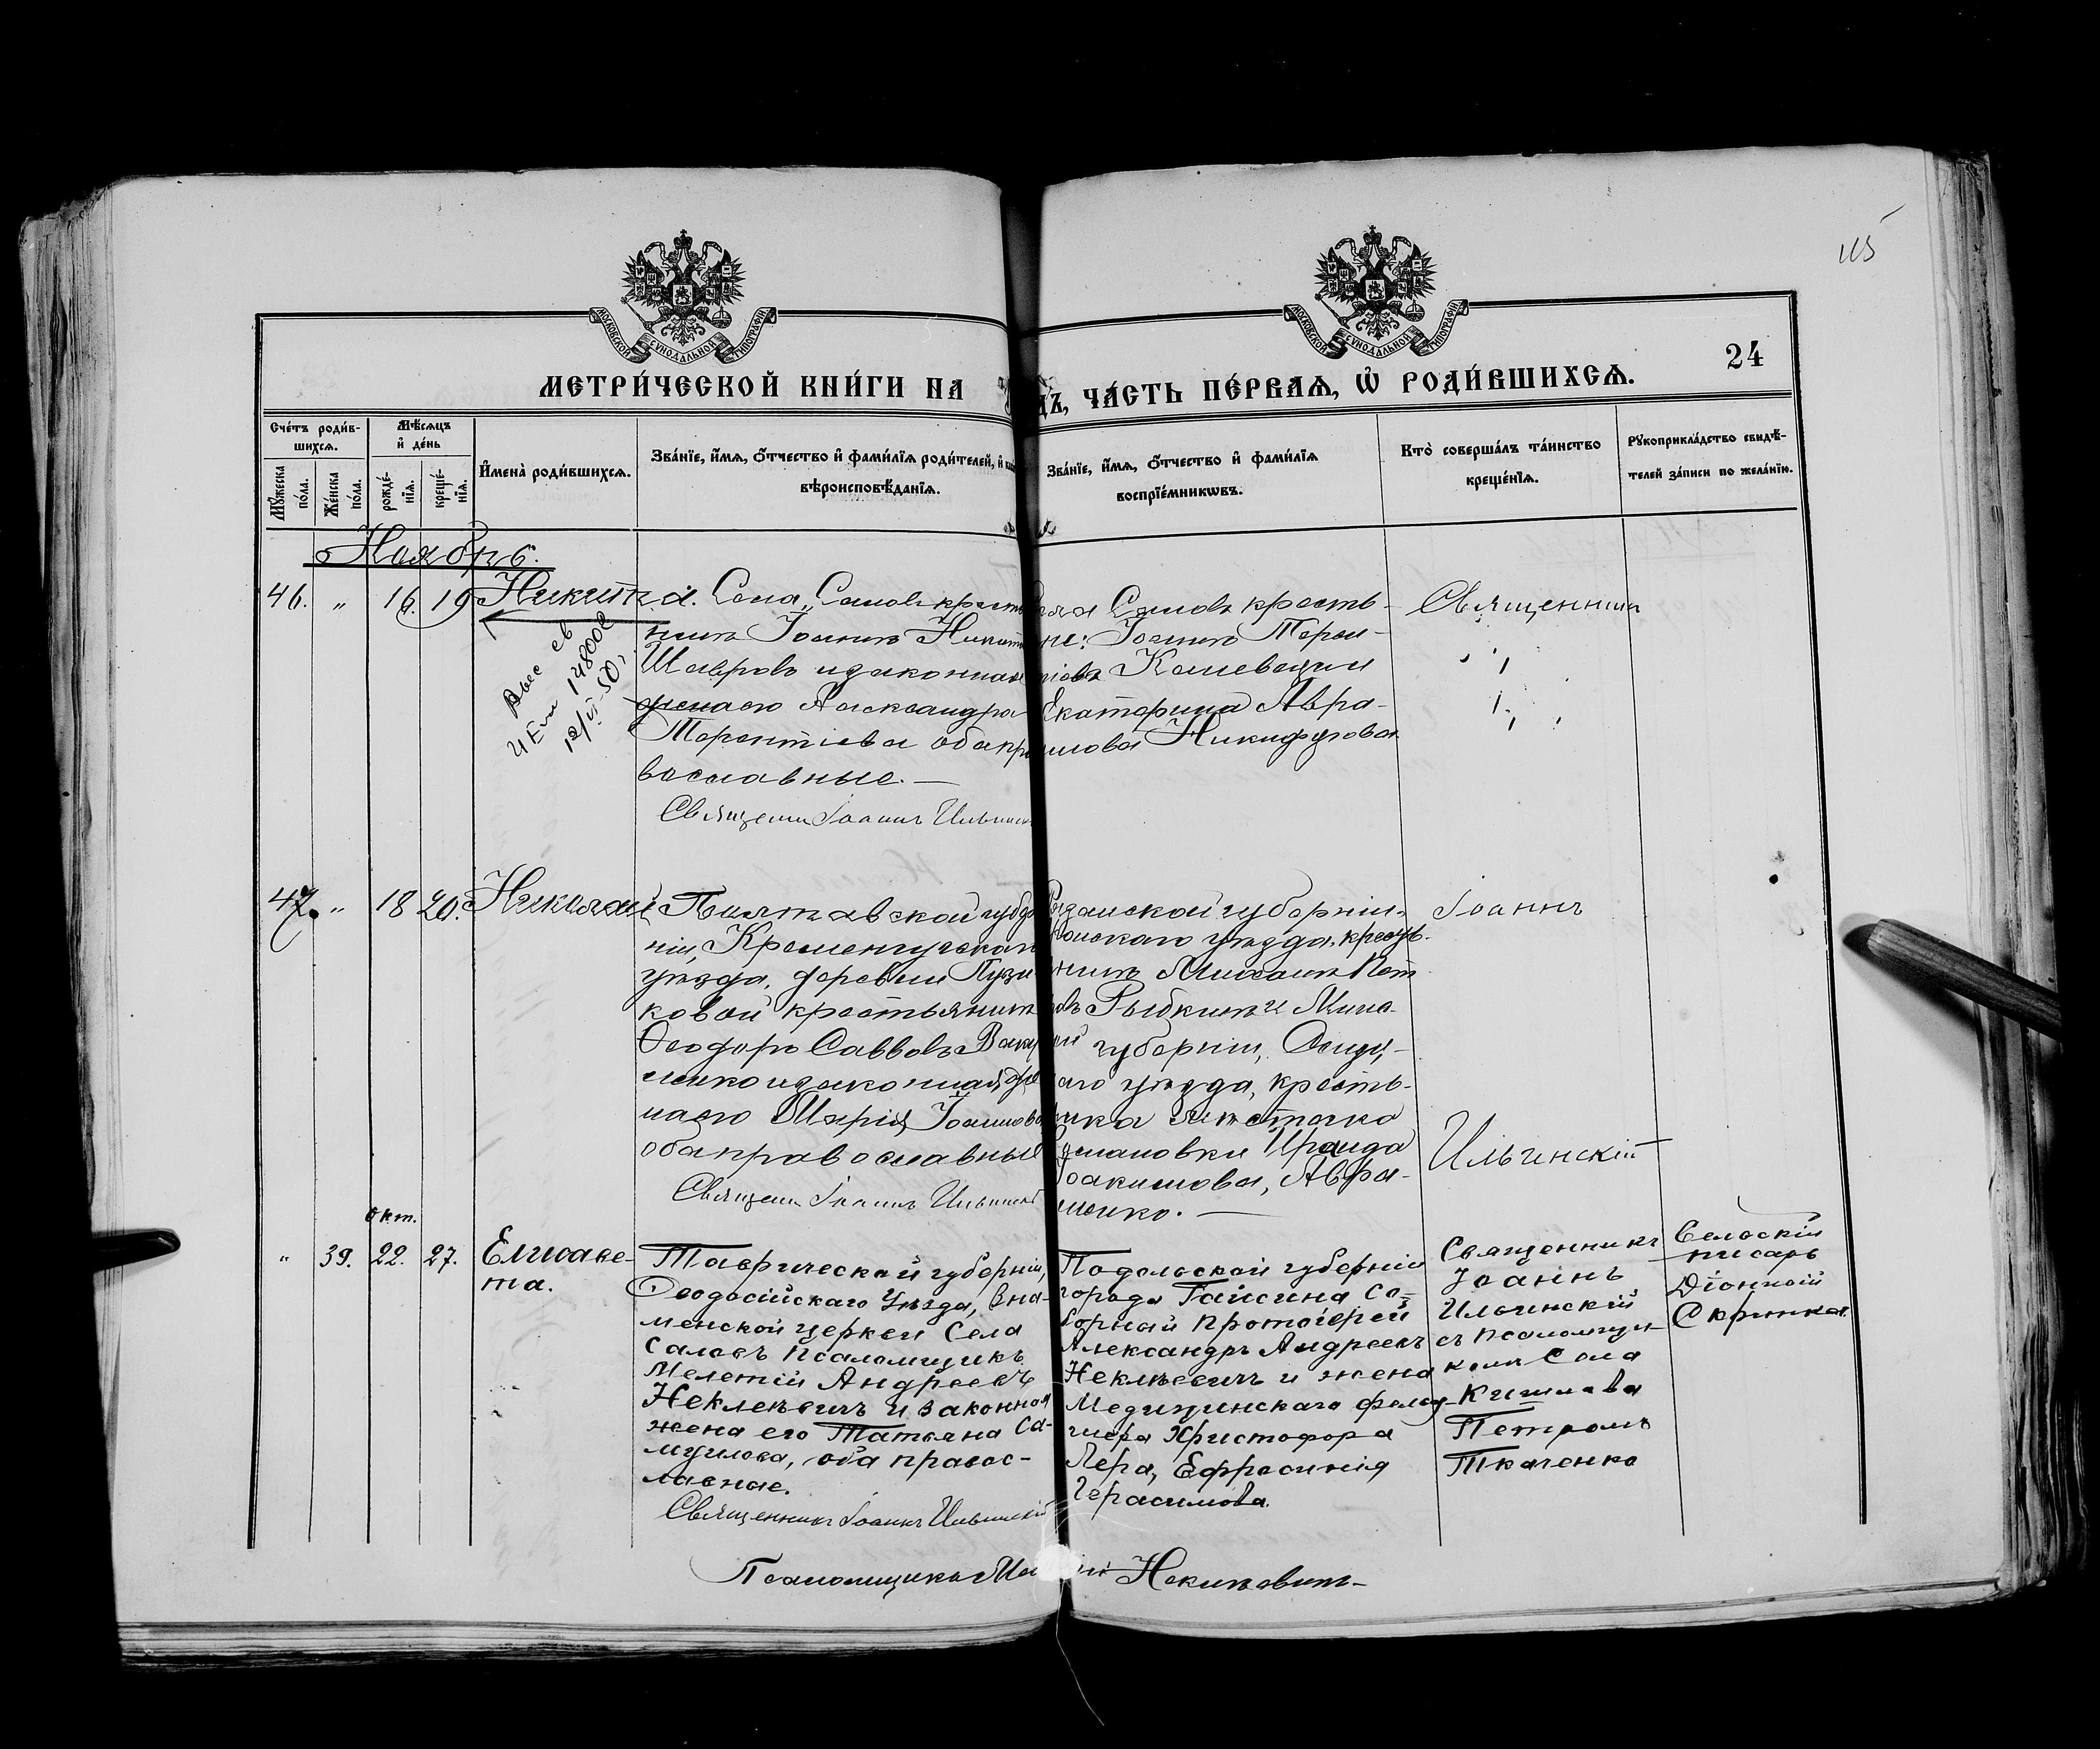 115
МОСКОВСКОЙ СѴНОДАЛЬНОЙ ТИПОГРАФІИ
МОСКОВСКОЙ СѴНОДАЛЬНОЙ ТИПОГРАФІИ
24
МЕТРИ́ЧЕСКОЙ КНИ́ГИ НА
ДЪ, ЧА́СТЬ ПЕ́РВАѦ, Ѡ҆ РОДИ́ВШИХСѦ.
Сче́тъ роди́в-
шихсѧ.
Мꙋ́жеска по́ла.
Же́нска по́ла.
Мѣ́сѧцъ
и҆ де́нь
рожде́-
нїѧ.
креще́-
нїѧ.
И҆мена̀ роди́вшихсѧ.
Зва́нїе, и҆́мѧ, ѻ҆́тчество и҆ фами́лїѧ роди́телей, и҆
вѣроисповѣ́данїѧ.
Зва́нїе, и҆́мѧ, ѻ҆́тчество и҆ фами́лїѧ
воспрїе́мникѡвъ.
Кто̀ соверша́лъ та́инство
креще́нїѧ.
Рꙋкоприкла́дство свидѣ́-
телей за́писи по жела́нїю.
Ноябрь.
46. „ 16. 19 Никита.
Села Саловъ кресть
нинъ Іоаннъ Никит
Шавровъ и законная
жена его Александра
Терентіева оба пра
вославные.—
Священ Іоаннъ Ильинск
Саловъ кресть-
не: Іоаннъ Терен-
тіевъ Кошевецкій
Екатерина Авра-
мова Никифорова
Священникъ
12/VI-50 г.
47. „ 18 20. Николай
Полтавской губер
ніи, Кременчугскаго
уѣзда, деревни Пузи
ковой крестьянинъ
Ѳеодоръ Саввовъ Ваку
ленко и законная же
на его Марія Іоаннова
оба православные
Священ Іоаннъ Ильинскій
Рязанской губерніи,
уѣзда, кресть-
нинъ Михаилъ Пет
ровъ Рыбкинъ и
губерніи,
аго уѣзда, кресть-
мѣстечка
Ираида
Іоакимова, Авра-
менко.—
Іоаннъ
Ильинскій
окт.
„ 39. 22. 27. Елисаве-
та.
Таврической губерніи,
Ѳеодосійскаго Уѣзда, Зна-
менской церкви Села
Саловъ Псаломщикъ
Мелетій Андреевъ
Неклѣевичъ и законная
жена его Татьяна Са-
муилова, оба правос-
лавные.
Священникъ Іоаннъ Ильинскій
Подольской губерніи
города Гайсина Со-
борный Протоіерей
Александръ Андреевъ
Неклѣевичъ и жена
Медицинскаго фельд-
шера Христофора
Лера, Ефросинія
Герасимова.
Священникъ
Іоаннъ
Ильинскій
съ псаломщи-
комъ Села
Кишлава
Петромъ
Ткаченко
Сельскій
писарь
Діонисій
Скрипка.
Псаломщикъ Мелетій Неклѣевичъ